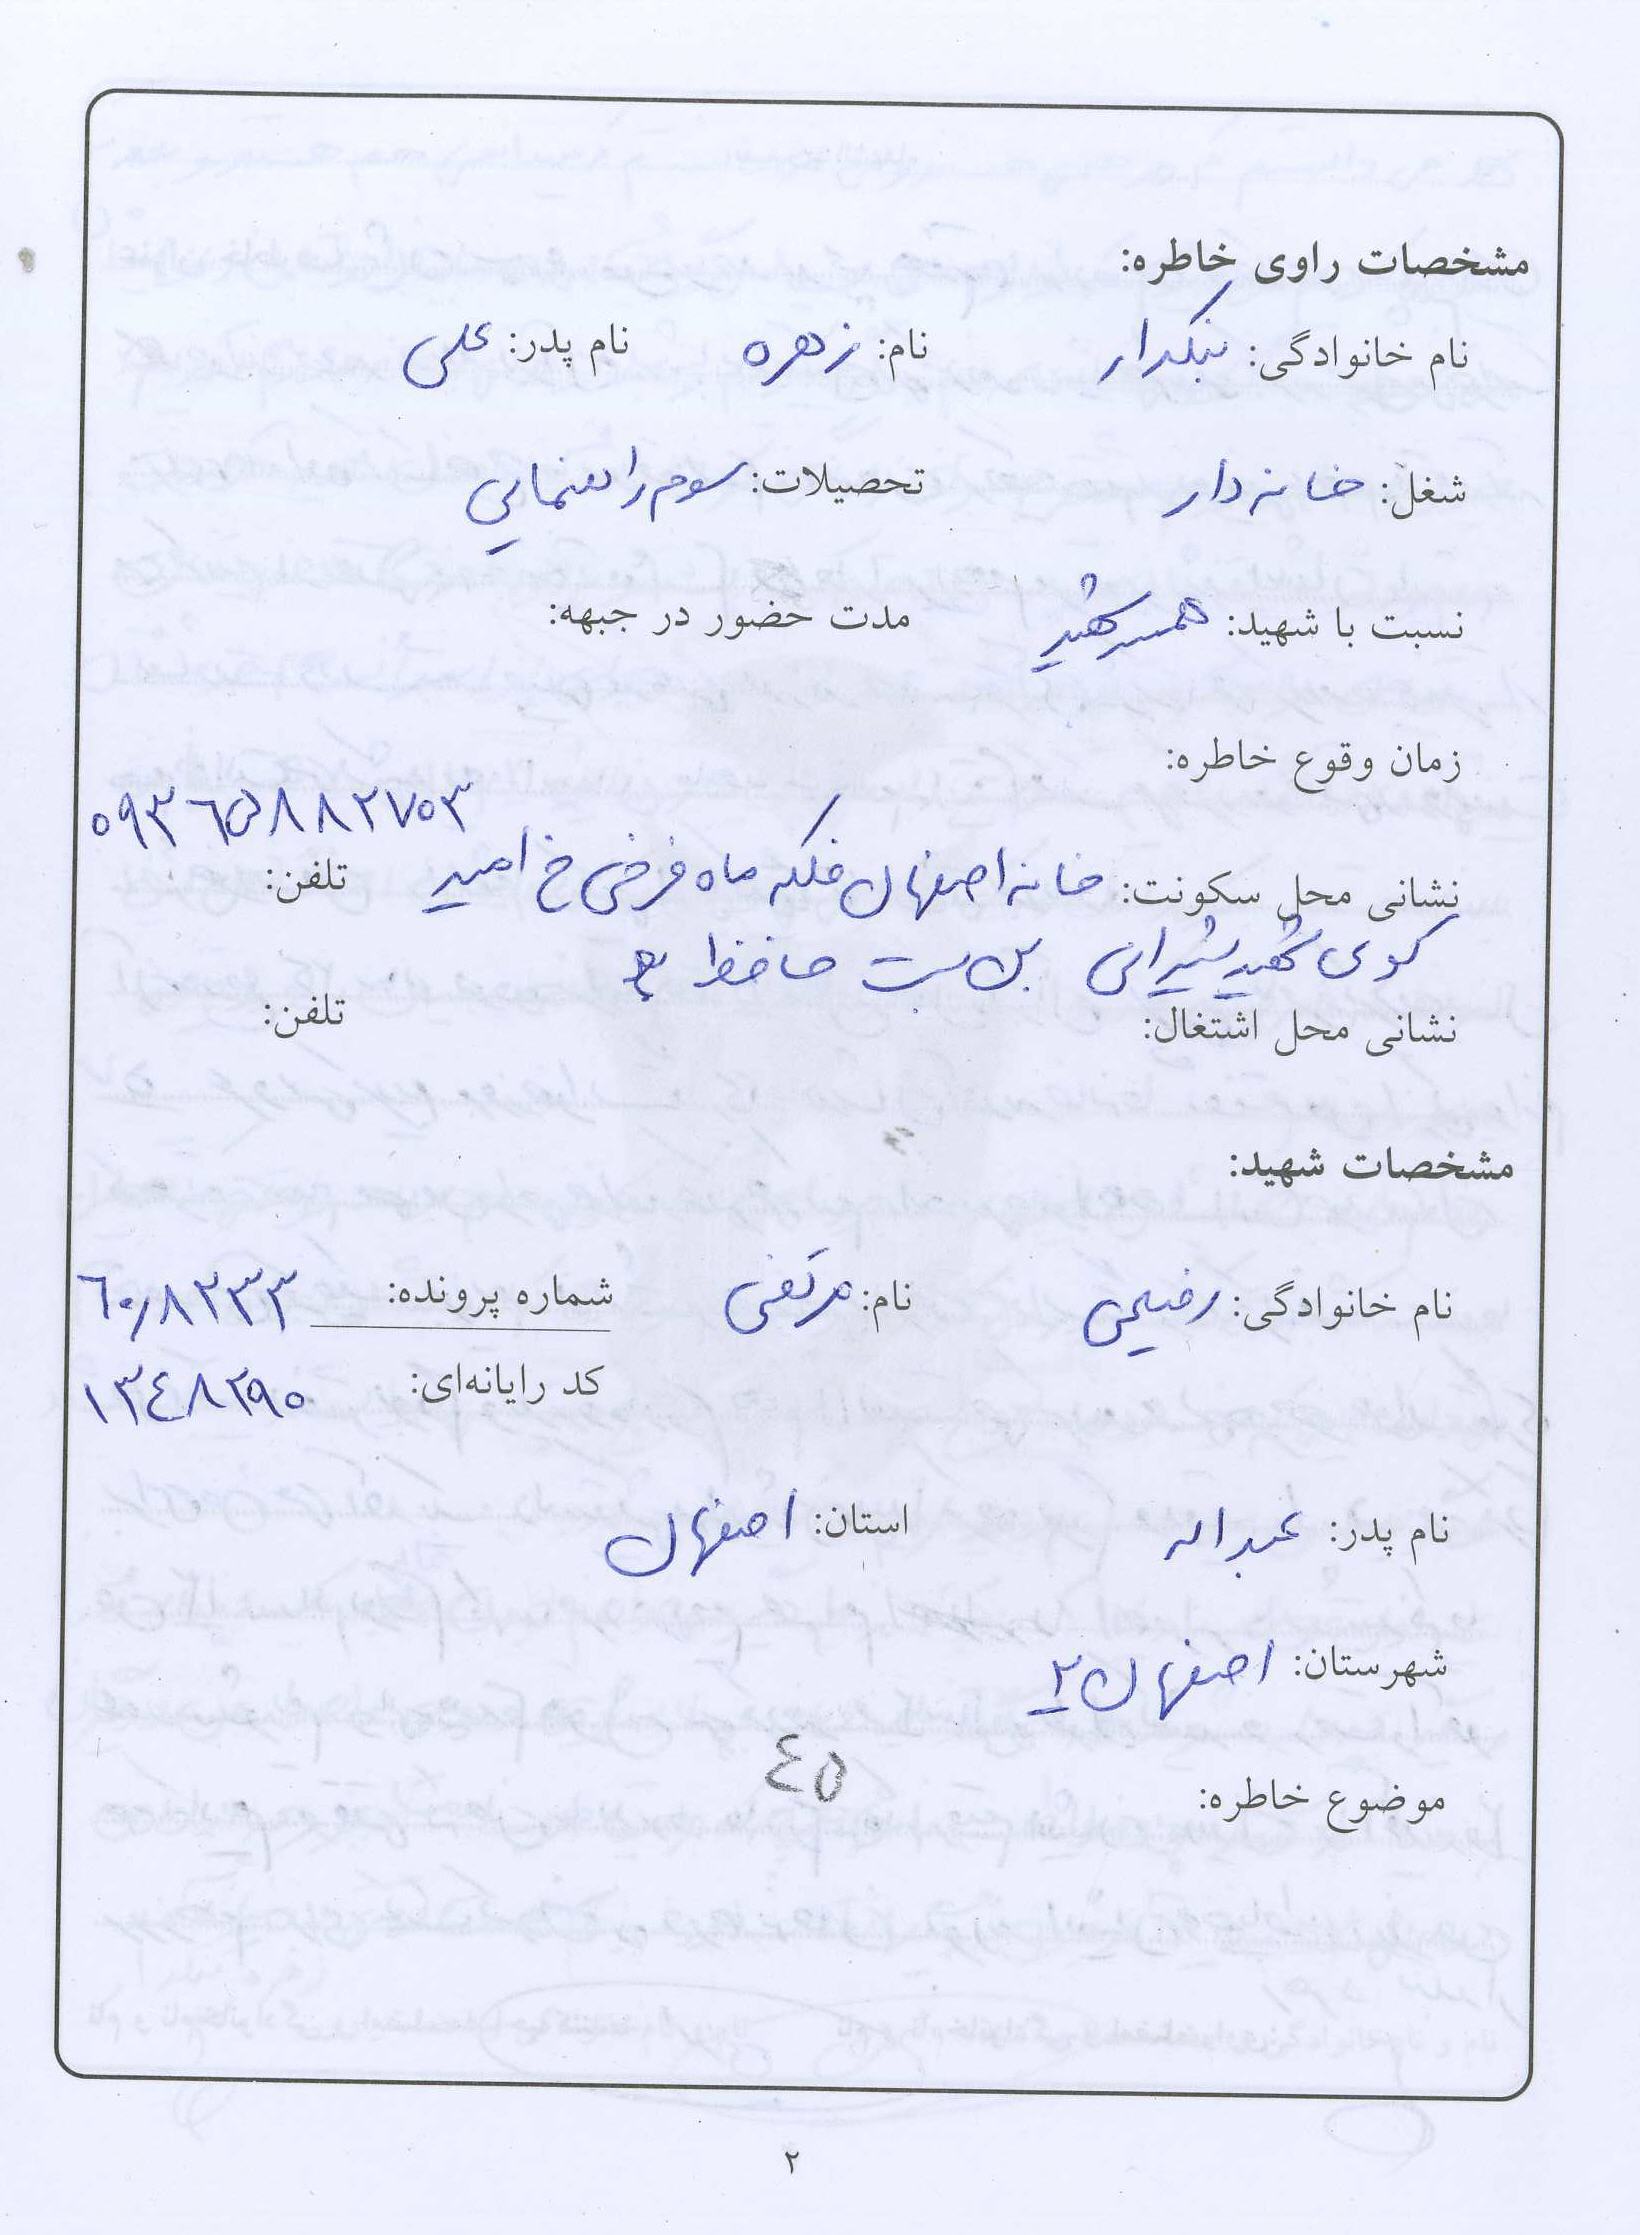 مشخصات راوی خاطره:
نام خانوادگی: نیکدار نام: زهره نام پدر: علی
شغل: خانه دار تحصیلات: سوم راهنمایی
نسبت با شهید: همسر شهید مدت حضور در جبهه:
زمان وقوع خاطره:
۰۹۳۶۵۸۸۲۷۰۳
نشانی محل سکونت: خانه اصفهان فلکه ماه فرخی خ امید تلفن:
کوی شهید شیرانی بن بست حافظ
نشانی محل اشتغال: تلفن:
مشخصات شهید:
نام خانوادگی: رفیعی نام: مرتضی شماره پرونده: ۶۰/۸۲۳۳
کد رایانه‌ای: ۱۳۴۸۲۹۰
نام پدر: عبداله استان: اصفهان
شهرستان: اصفهان ۲
۴۵
موضوع خاطره:
۲